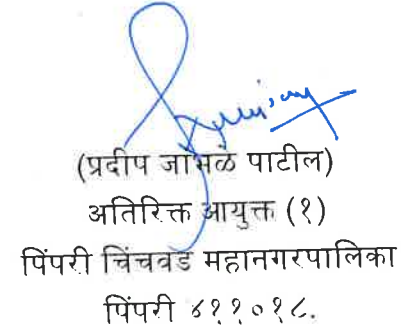 (प्रदीप जांभळे पाटील)
अतिरिक्त आयुक्त (१)
पिंपरी चिंचवड महानगरपालिका
पिंपरी ४११०१८.